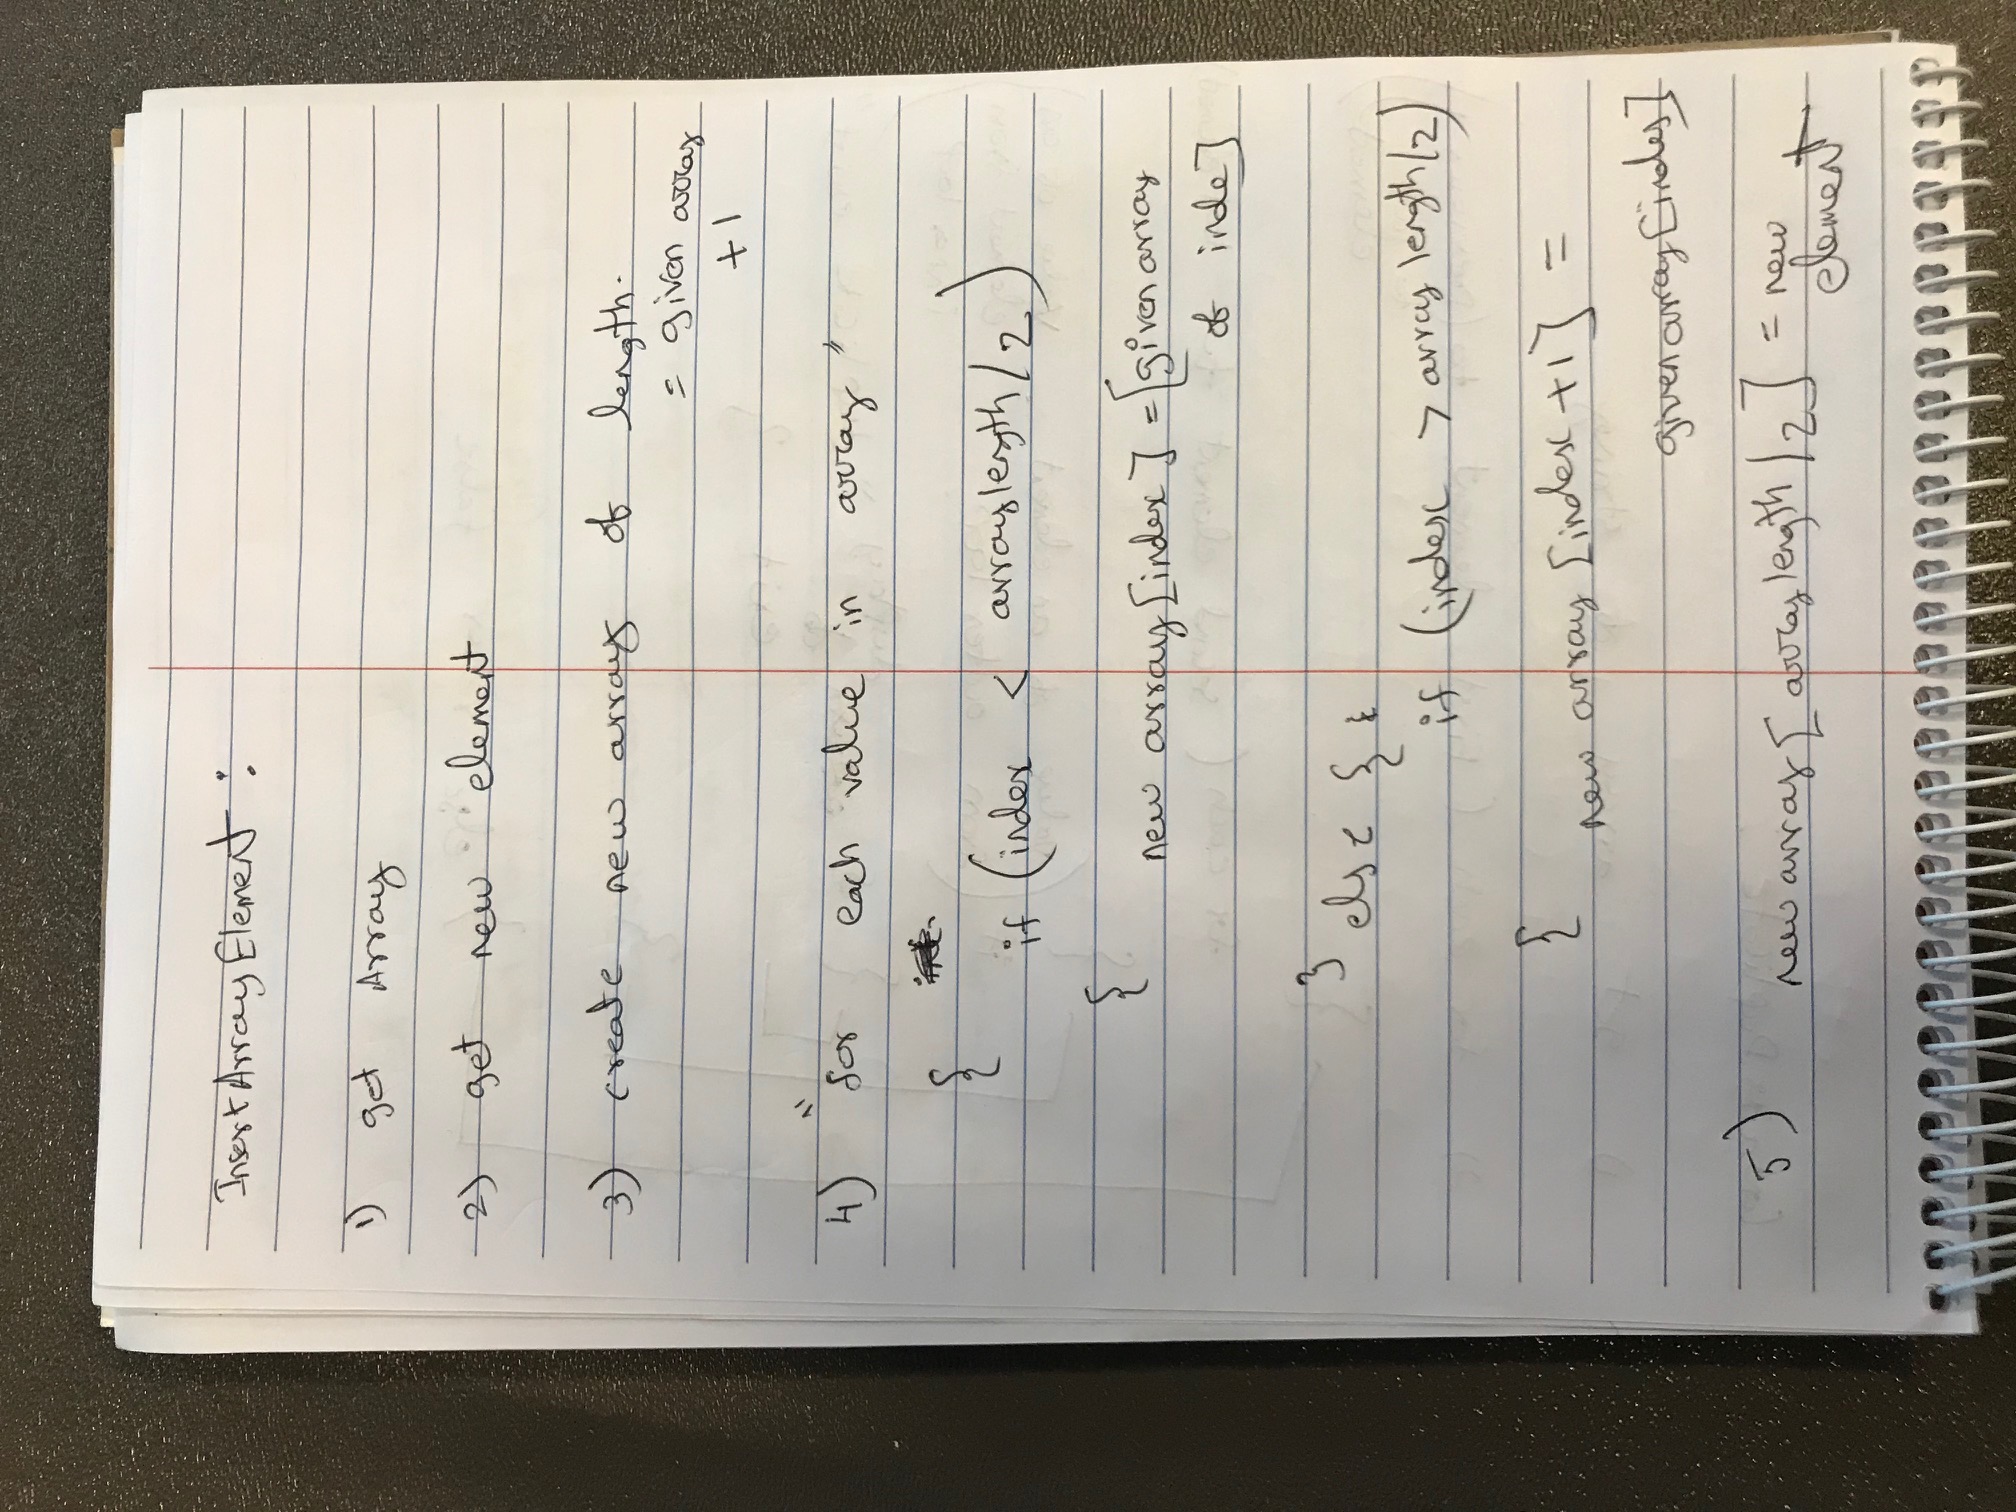 InsertArrayElement :
1) get Array
2) get new element
3) create new array of length.
= given array
+1
4) "for each value in array"
{
if (index < arraylength/2)
{
new array [index] = [given array
of inde]
} else {
if (index > array length/2)
{
new array [index +1] =
given array [index]
5) new array [array length /2] = new
element